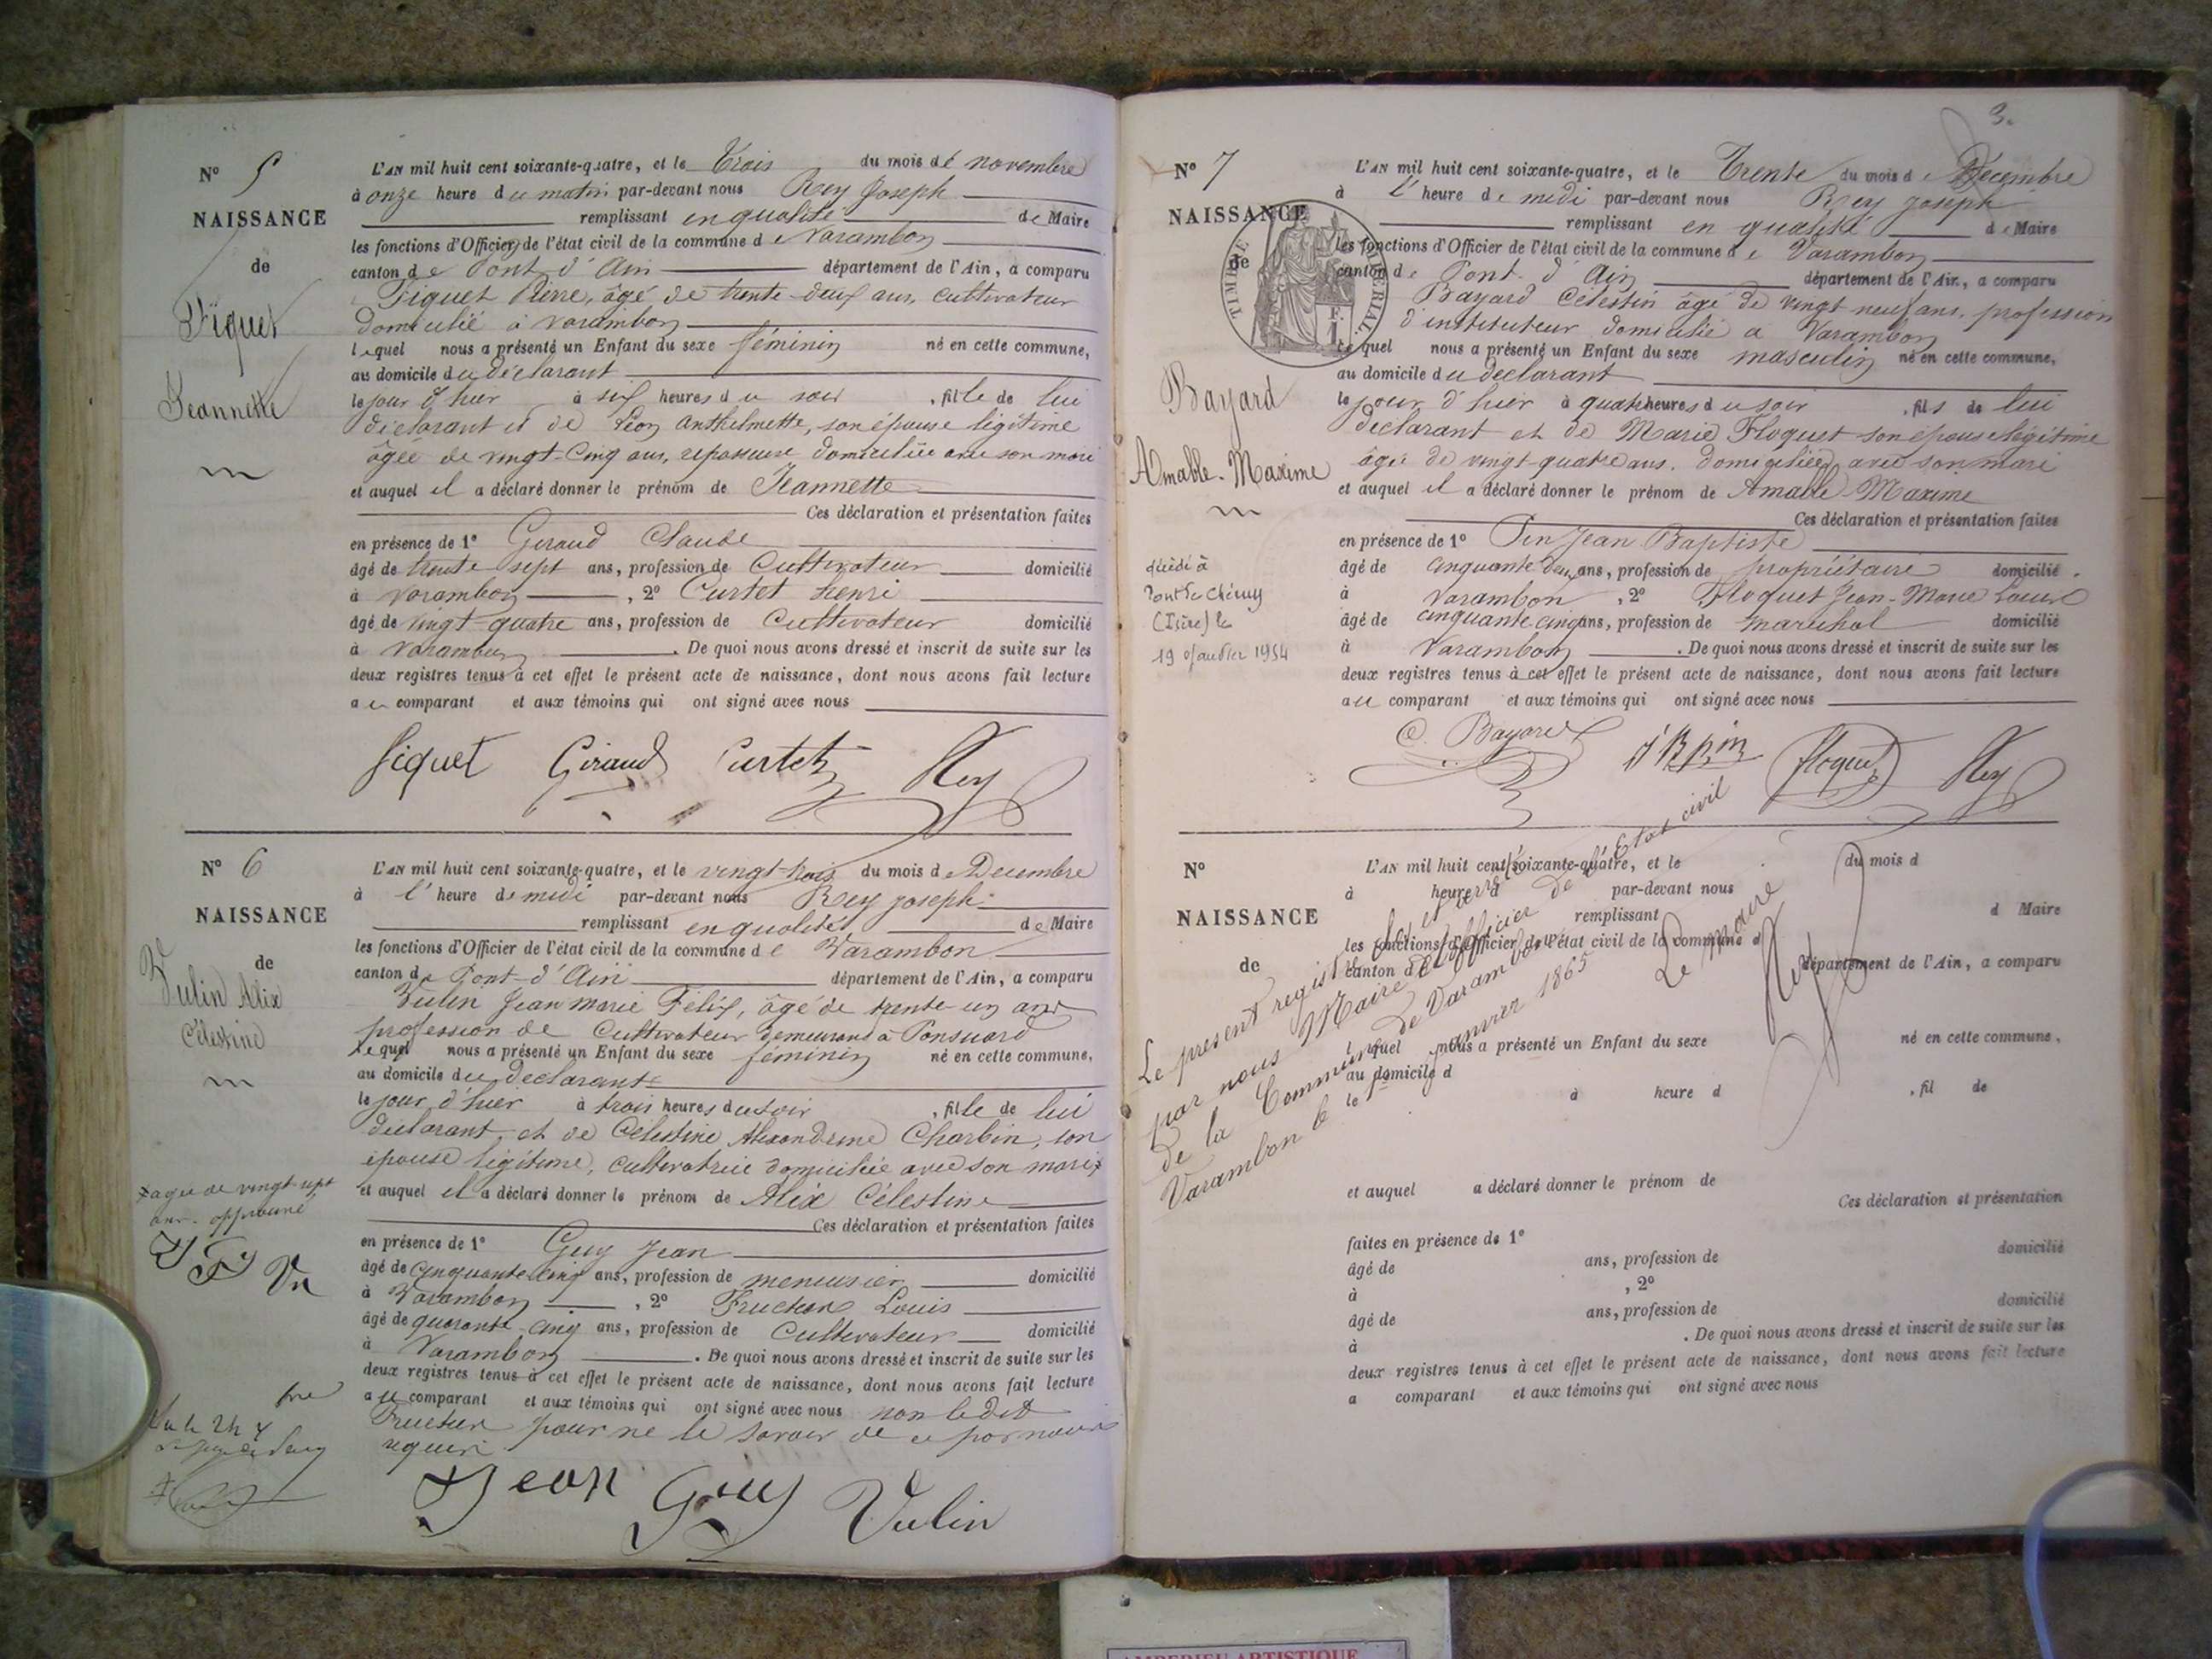 N° 5
NAISSANCE
de
Fiquet
Jeannette
L'AN mil huit cent soixante-quatre, et le Trois du mois de novembre
à onze heure du matin par-devant nous Rey Joseph
remplissant en qualité de Maire
les fonctions d'Officier de l'état civil de la commune de Varambon
canton de Pont d'Ain département de l'Ain, a comparu
Fiquet Pierre, âgé de trente-deux ans, cultivateur
domicilié à Varambon
lequel nous a présenté un Enfant du sexe féminin né en cette commune,
au domicile du déclarant
le jour d'hier à six heures du soir, fille de lui
déclarant et de Léon Anthelmette, son épouse légitime
âgée de vingt-cinq ans, repasseuse domiciliée avec son mari
et auquel il a déclaré donner le prénom de Jeannette
Ces déclaration et présentation faites
en présence de 1° Giraud Claude
âgé de trente sept ans, profession de Cultivateur domicilié
à Varambon, 2° Curtet henri
âgé de vingt-quatre ans, profession de Cultivateur domicilié
à Varambon. De quoi nous avons dressé et inscrit de suite sur les
deux registres tenus à cet effet le présent acte de naissance, dont nous avons fait lecture
au comparant et aux témoins qui ont signé avec nous
fiquet Giraud Curtet Rey
N° 6
NAISSANCE
de
Vulin Alix
Célestine
L'AN mil huit cent soixante-quatre, et le vingt-trois du mois de Decembre
à l'heure de midi par-devant nous Rey joseph
remplissant en qualité de Maire
les fonctions d'Officier de l'état civil de la commune de Varambon
canton de Pont-d'Ain département de l'Ain, a comparu
Vulin Jean marie Félix, âgé de trente-un ans
profession de Cultivateur demeurant à Ponsuard
lequel nous a présenté un Enfant du sexe féminin né en cette commune,
au domicile du declarant
le jour d'hier à trois heures du soir, fille de lui
declarant et de Célestine Alexandrine Charbin, son
épouse légitime, cultivatrice domiciliée avec son mari
agée de vingt sept
ans. approuvé
et auquel il a déclaré donner le prénom de Alix Célestine
Ces déclaration et présentation faites
en présence de 1° Guy Jean
âgé de cinquante cinq ans, profession de menuisier domicilié
à Varambon, 2° Louis
âgé de quarante-cinq ans, profession de Cultivateur domicilié
à Varambon. De quoi nous avons dressé et inscrit de suite sur les
deux registres tenus à cet effet le présent acte de naissance, dont nous avons fait lecture
au comparant et aux témoins qui ont signé avec nous non ledit
pour ne le savoir de ce par nous
requis
Jean Guy Vulin
3.
N° 7
NAISSANCE
de
TIMBRE IMPÉRIAL.
Bayard
Amable-Maxime
décédé à
Pont de Chéruy
(Isère) le
19 Janvier 1954
L'AN mil huit cent soixante-quatre, et le Trente du mois de Décembre
à l'heure de midi par-devant nous Rey joseph
remplissant en qualité de Maire
les fonctions d'Officier de l'état civil de la commune de Varambon
canton de Pont-d'Ain département de l'Ain, a comparu
Bayard Célestin âgé de vingt neuf ans, profession
d'instituteur domicilié à Varambon
lequel nous a présenté un Enfant du sexe masculin né en cette commune,
au domicile du declarant
le jour d'hier à quatre heures du soir, fils de lui
declarant et de Marie Floquet son épouse légitime
âgée de vingt-quatre ans. domiciliée avec son mari
et auquel il a déclaré donner le prénom de Amable-Maxime
Ces déclaration et présentation faites
en présence de 1° Pin Jean Baptiste
âgé de cinquante deux ans, profession de propriétaire domicilié
à Varambon, 2° Floquet Jean-Marie
âgé de cinquante cinq ans, profession de maréchal domicilié
à Varambon. De quoi nous avons dressé et inscrit de suite sur les
deux registres tenus à cet effet le présent acte de naissance, dont nous avons fait lecture
au comparant et aux témoins qui ont signé avec nous
C. Bayard JB pin floquet Rey
N°
NAISSANCE
de
L'AN mil huit cent soixante-quatre, et le du mois d
à heure d par-devant nous
remplissant d Maire
les fonctions d'Officier de l'état civil de la commune d
canton d département de l'Ain, a comparu
lequel nous a présenté un Enfant du sexe né en cette commune,
au domicile d
le à heure d, fil de
et auquel a déclaré donner le prénom de
Ces déclaration et présentation
faites en présence de 1°
âgé de ans, profession de domicilié
à, 2°
âgé de ans, profession de domicilié
à. De quoi nous avons dressé et inscrit de suite sur les
deux registres tenus à cet effet le présent acte de naissance, dont nous avons fait lecture
a comparant et aux témoins qui ont signé avec nous
Le présent registre clos et arrêté
par nous Maire Officier de l'Etat civil
de la Commune de Varambon
Varambon le 1er janvier 1865
Le Maire
Rey
AMBERIEU ARTISTIQUE